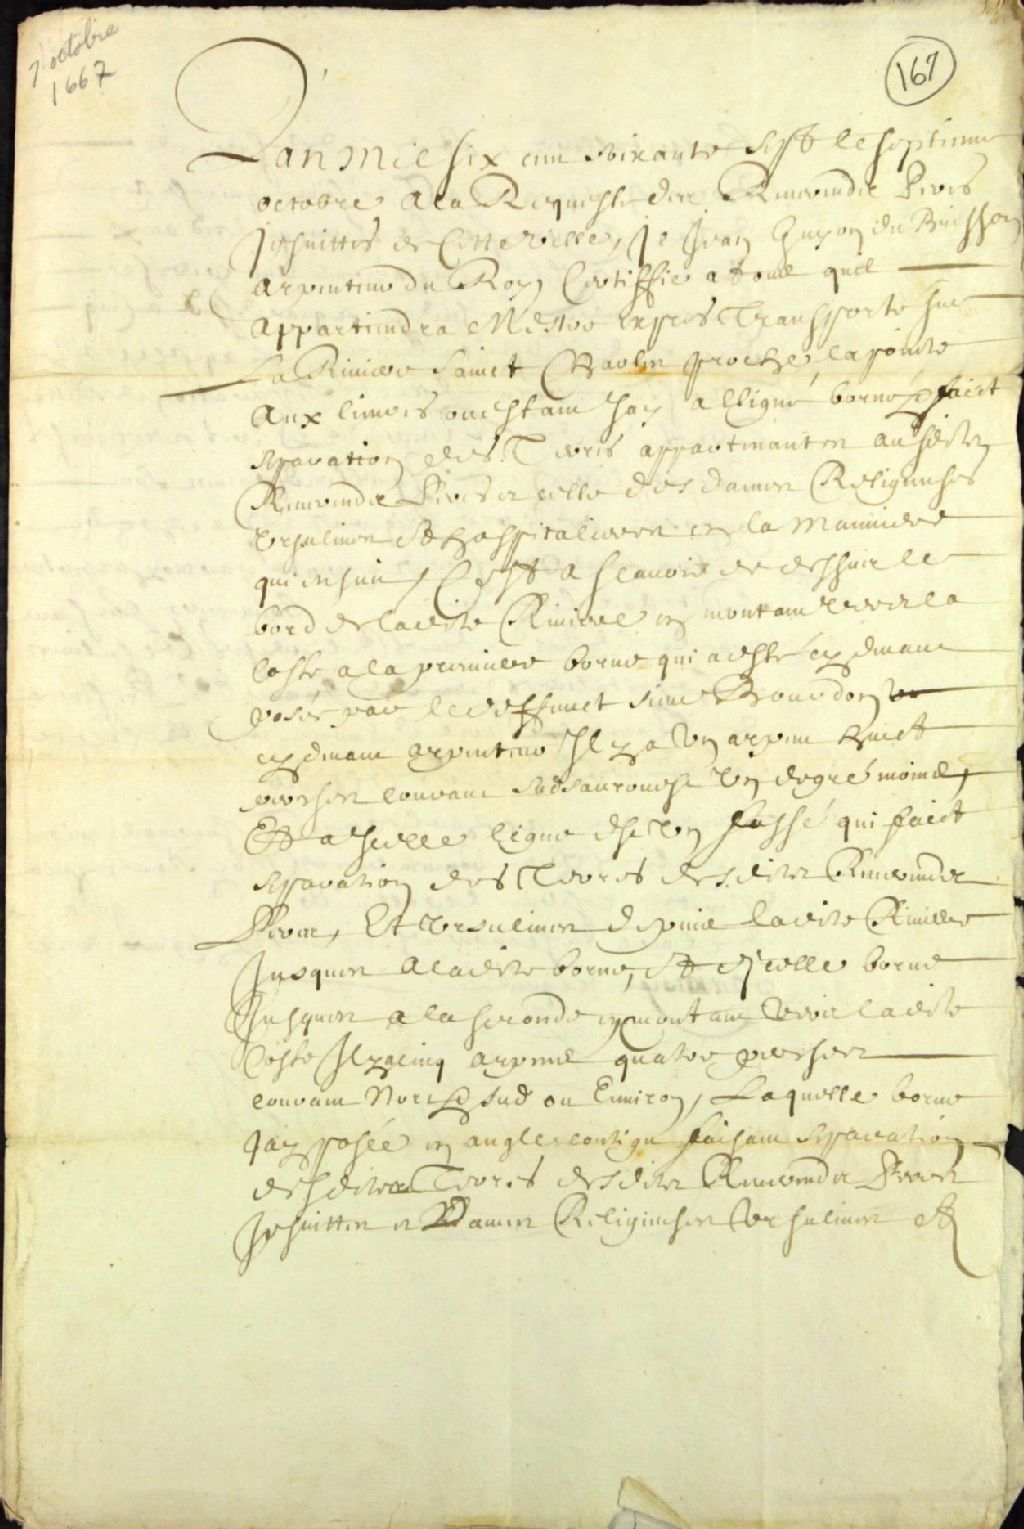 7 octobre
1667
167
Lan Mil six cens soixante sept le septieme
octobre a la Requeste des Reverendz Peres
Jesuittes de Cette ville, Je Jean Guyon du Buisson
arpenteur du Roy Certiffie a tous quil
appartiendra Mestre expres Transporte sur
La Riviere Sainct Charles proche la pointe
aux lievres ou estant Jay alligné borné & faict
separation des Terres appartenantes ausdits
Reverendz Peres et celle des dames Religieuses
Ursulines & hospitalieres en la Manniere
qui ensuit, Cest a scavoir de dessus le
bord de ladite Riviere en montant vers la
Coste a la premiere borne qui a esté cy devant
posée par le deffunct sieur Bourdon
cy devant arpenteur Il y a un arpent huict
perches courant sudsurouest un degré moins,
Et a icelle ligne est un fossé qui faict
separation des Terres desdits Reverendz
Peres, Et Ursulines depuis ladite Riviere
Jusques a ladite borne, Et dicelle borne
Jusques a la seconde en montant vers ladite
Coste Il y a cinq arpens quatre perches
courant Nord & sud ou Environ, Laquelle borne
Jay posée en angle contigu faisant separation
desdites Terres desdits Reverendz Peres
Jesuittes et Dames Religieuses Ursulines Et